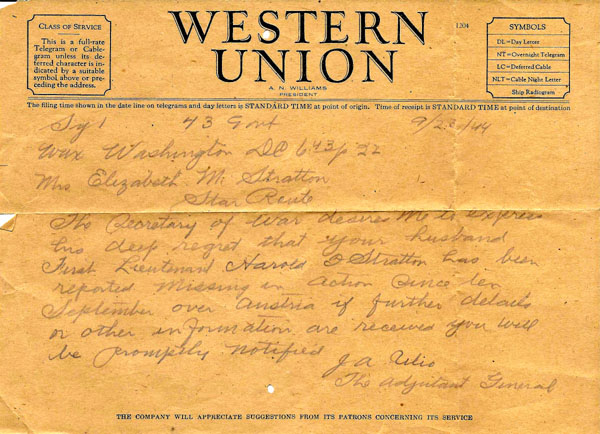 CLASS OF SERVICE
This is a full-rate
Telegram or Cable-
gram unless its de-
ferred character is in-
dicated by a suitable
symbol above or pre-
ceding the address.
WESTERN
UNION
A. N. WILLIAMS
PRESIDENT
1204
SYMBOLS
DL=Day Letter
NT=Overnight Telegram
LC=Deferred Cable
NLT=Cable Night Letter
Ship Radiogram
The filing time shown in the date line on telegrams and day letters is STANDARD TIME at point of origin. Time of receipt is STANDARD TIME at point of destination
43 Govt 9/23/44
Wux Washington DC 643p 22
Mrs Elizabeth M. Stratton
Star Route
The Secretary of War desires me to express
his deep regret that your husband
First Lieutenant Harold D Stratton has been
reported missing in action since ten
September over Austria if further details
or other information are received you will
be promptly notified
J A Ulio
The Adjutant General
THE COMPANY WILL APPRECIATE SUGGESTIONS FROM ITS PATRONS CONCERNING ITS SERVICE